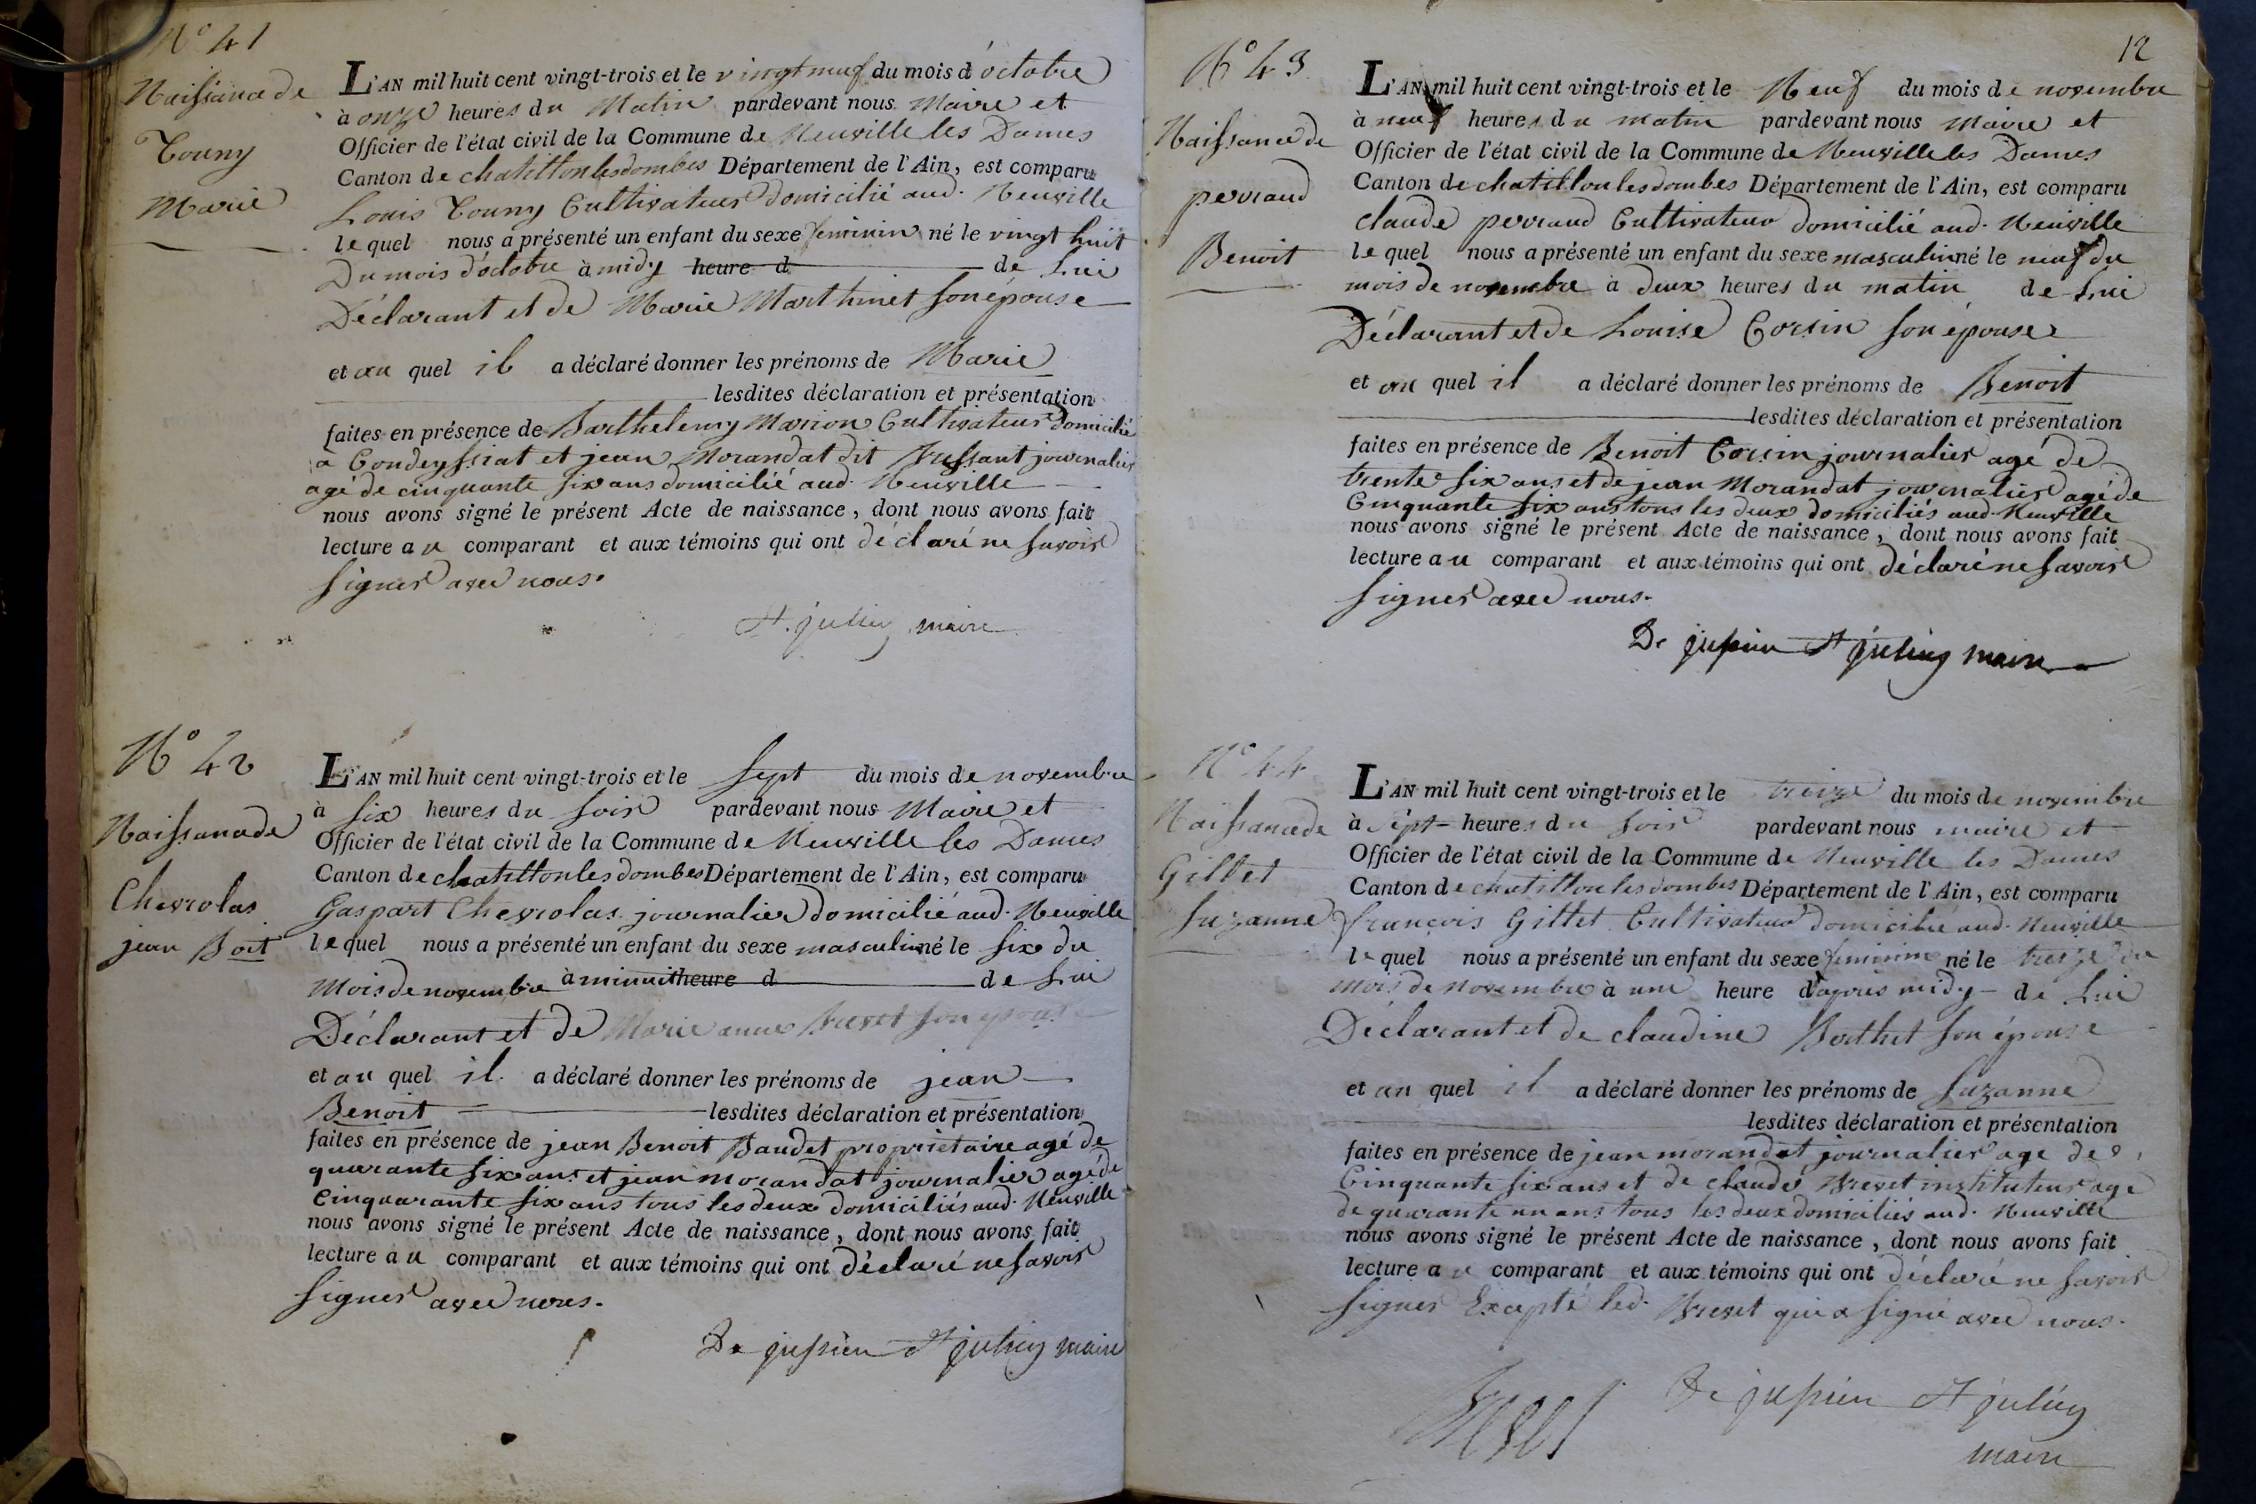 N° 41
Naissance de
Touny
Marie
L'AN mil huit cent vingt-trois et le vingt neuf du mois d'octobre
à onze heures du Matin pardevant nous Maire et
Officier de l'état civil de la Commune de Neuville les Dames
Canton de chatillon les dombes Département de l'Ain, est comparu
Louis Touny Cultivateur domicilié aud. Neuville
lequel nous a présenté un enfant du sexe feminin né le vingt huit
Du mois d'octobre à midy heure d de Lui
Déclarant et de Marie Marthinet son épouse
et au quel il a déclaré donner les prénoms de Marie
lesdites déclaration et présentation
faites en présence de Barthelemy Marion Cultivateur Domicilié
a Condeyssiat et jean Morandat dit Bressant journalier
agé de cinquante six ans domicilié aud. Neuville
nous avons signé le présent Acte de naissance, dont nous avons fait
lecture au comparant et aux témoins qui ont déclaré ne savoir
signer avec nous.
St. julien maire
N° 42
Naissance de
Chevrolas
jean Boit
L'AN mil huit cent vingt-trois et le sept du mois de novembre
à six heures du soir pardevant nous Maire et
Officier de l'état civil de la Commune de Neuville les Dames
Canton de chatillon les dombes Département de l'Ain, est comparu
Gaspart Chevrolas journalier domicilié aud. Neuville
lequel nous a présenté un enfant du sexe masculin né le six du
Mois de novembre à minuit heure d de Lui
Déclarant et de Marie anne Brevet son epouse
et au quel il a déclaré donner les prénoms de jean
Benoit lesdites déclaration et présentation
faites en présence de jean Benoit Baudet proprietaire agé de
quarante six ans et jean morandat journalier agé de
Cinquarante six ans tous les deux domiciliés aud. Neuville
nous avons signé le présent Acte de naissance, dont nous avons fait
lecture au comparant et aux témoins qui ont déclaré ne savoir
signer avec nous.
De jussieu St julien maire
12
N° 43
Naissance de
perraud
Benoit
L'AN mil huit cent vingt-trois et le Neuf du mois de novembre
à neuf heures du matin pardevant nous Maire et
Officier de l'état civil de la Commune de Neuville les Dames
Canton de chatillon les dombes Département de l'Ain, est comparu
claude perraud Cultivateur domicilié aud. Neuville
lequel nous a présenté un enfant du sexe masculin né le neuf du
mois de novembre à deux heures du matin de Lui
Déclarant et de Louise Corsin son épouse
et au quel il a déclaré donner les prénoms de Benoit
lesdites déclaration et présentation
faites en présence de Benoit Corsin journalier agé de
trente six ans et de jean Morandat journalier agé de
Cinquante six ans tous les deux domiciliés aud. Neuville
nous avons signé le présent Acte de naissance, dont nous avons fait
lecture au comparant et aux témoins qui ont déclaré ne savoir
signer avec nous.
De jussieu St julien maire
N° 44
Naissance de
Gillet
Suzanne
L'AN mil huit cent vingt-trois et le treize du mois de novembre
à sept heures du soir pardevant nous maire et
Officier de l'état civil de la Commune de Neuville les Dames
Canton de chatillon les dombes Département de l'Ain, est comparu
françois Gillet Cultivateur domicilié aud. Neuville
lequel nous a présenté un enfant du sexe feminin né le treize du
mois de novembre à une heure d'apres midy de Lui
Déclarant et de claudine Berthet son épouse
et au quel il a déclaré donner les prénoms de Suzanne
lesdites déclaration et présentation
faites en présence de jean morandat journalier agé de
Cinquante six ans et de claude Brevet instituteur agé
de quarante un ans tous les deux domiciliés aud. Neuville
nous avons signé le présent Acte de naissance, dont nous avons fait
lecture au comparant et aux témoins qui ont déclaré ne savoir
signer Excepté led. Brevet qui a signé avec nous.
Brevet De jussieu St julien
maire